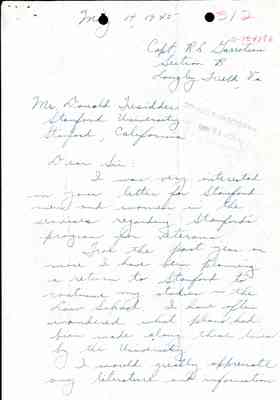 May 14, 1945
312
Capt. R L
Section B
Langley Field, Va
Mr. Donald Tresidder
Stanford University
Stanford, California
Dear Sir:
I was very interested
in your letter for Stanford
men and women in the
services regarding Stanford's
program for Veterans.
For the past year or
more I have been planning
a return to Stanford to
continue my studies in the
Law School. I have often
wondered what plans had
been made along these lines
by the University.
I would greatly appreciate
any literature and information